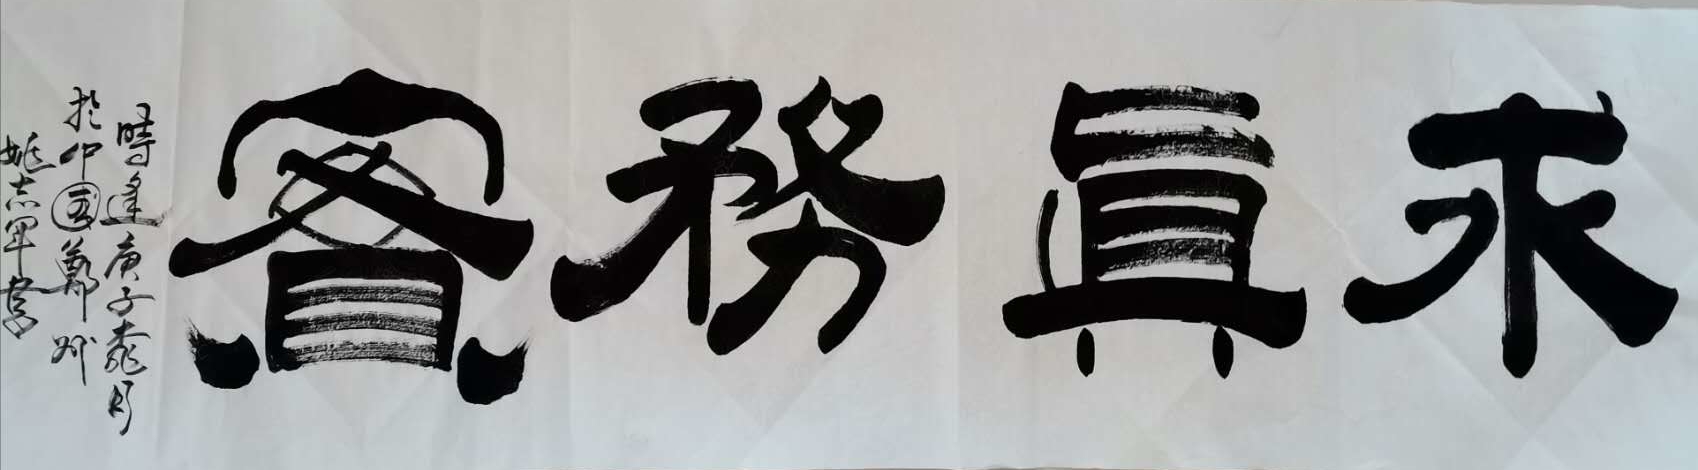 求真務實
時逢庚子月
於中國鄭州
姚志軍書